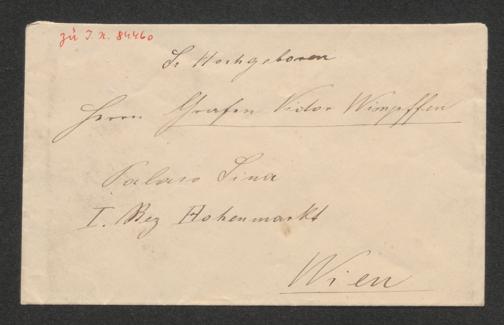 zu I. N. 84460
Sr Hochgeboren
Herrn Grafen Victor Wimpffen
Palais Sina
I. Bez Hohenmarkt
Wien